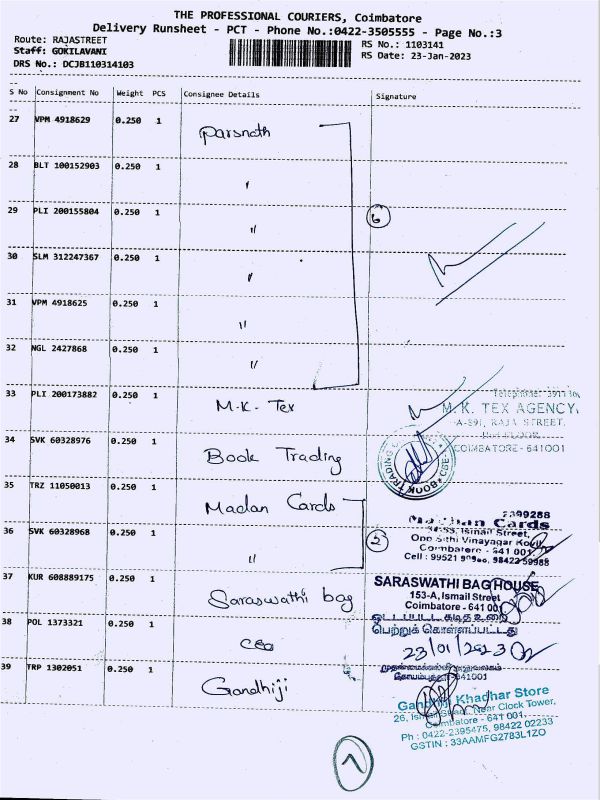 THE PROFESSIONAL COURIERS, Coimbatore
Delivery Runsheet - PCT - Phone No.:0422-3505555 - Page No.:3
Route: RAJASTREET
Staff: GOKILAVANI
DRS No.: DCJB110314103
RS No.: 1103141
RS Date: 23-Jan-2023
S No Consignment No Weight PCS Consignee Details Signature
27 VPM 4918629 0.250 1 Parsnath
28 BLT 100152903 0.250 1 "
29 PLI 200155804 0.250 1 " 6
30 SLM 312247367 0.250 1 "
31 VPM 4918625 0.250 1 "
32 NGL 2427868 0.250 1 "
33 PLI 200173882 0.250 1 M.K. Tex
M.K. TEX AGENCY,
A-891, RAJA STREET,
COIMBATORE - 641001
34 SVK 60328976 0.250 1 Book Trading
BOOK TRADING
CBE
35 TRZ 11050013 0.250 1 Madan Cards
2399288
Cards
Ismail Street,
Opp Sithi Vinayagar Kovil
Coimbatore - 641 001
Cell : 98422 59988
36 SVK 60328968 0.250 1 " 2
37 KUR 608889175 0.250 1 Saraswathi bag
SARASWATHI BAG HOUSE
153-A, Ismail Street
Coimbatore - 641 001
38 POL 1373321 0.250 1 CEO
பெற்றுக் கொள்ளப்பட்டது
23/01/2023
641001
39 TRP 1302051 0.250 1 Gandhiji
Gandhiji Khadhar Store
26, Ismail Street, Near Clock Tower,
Coimbatore - 641 001.
Ph : 0422-2395475, 98422 02233
GSTIN : 33AAMFG2783L1ZO
7